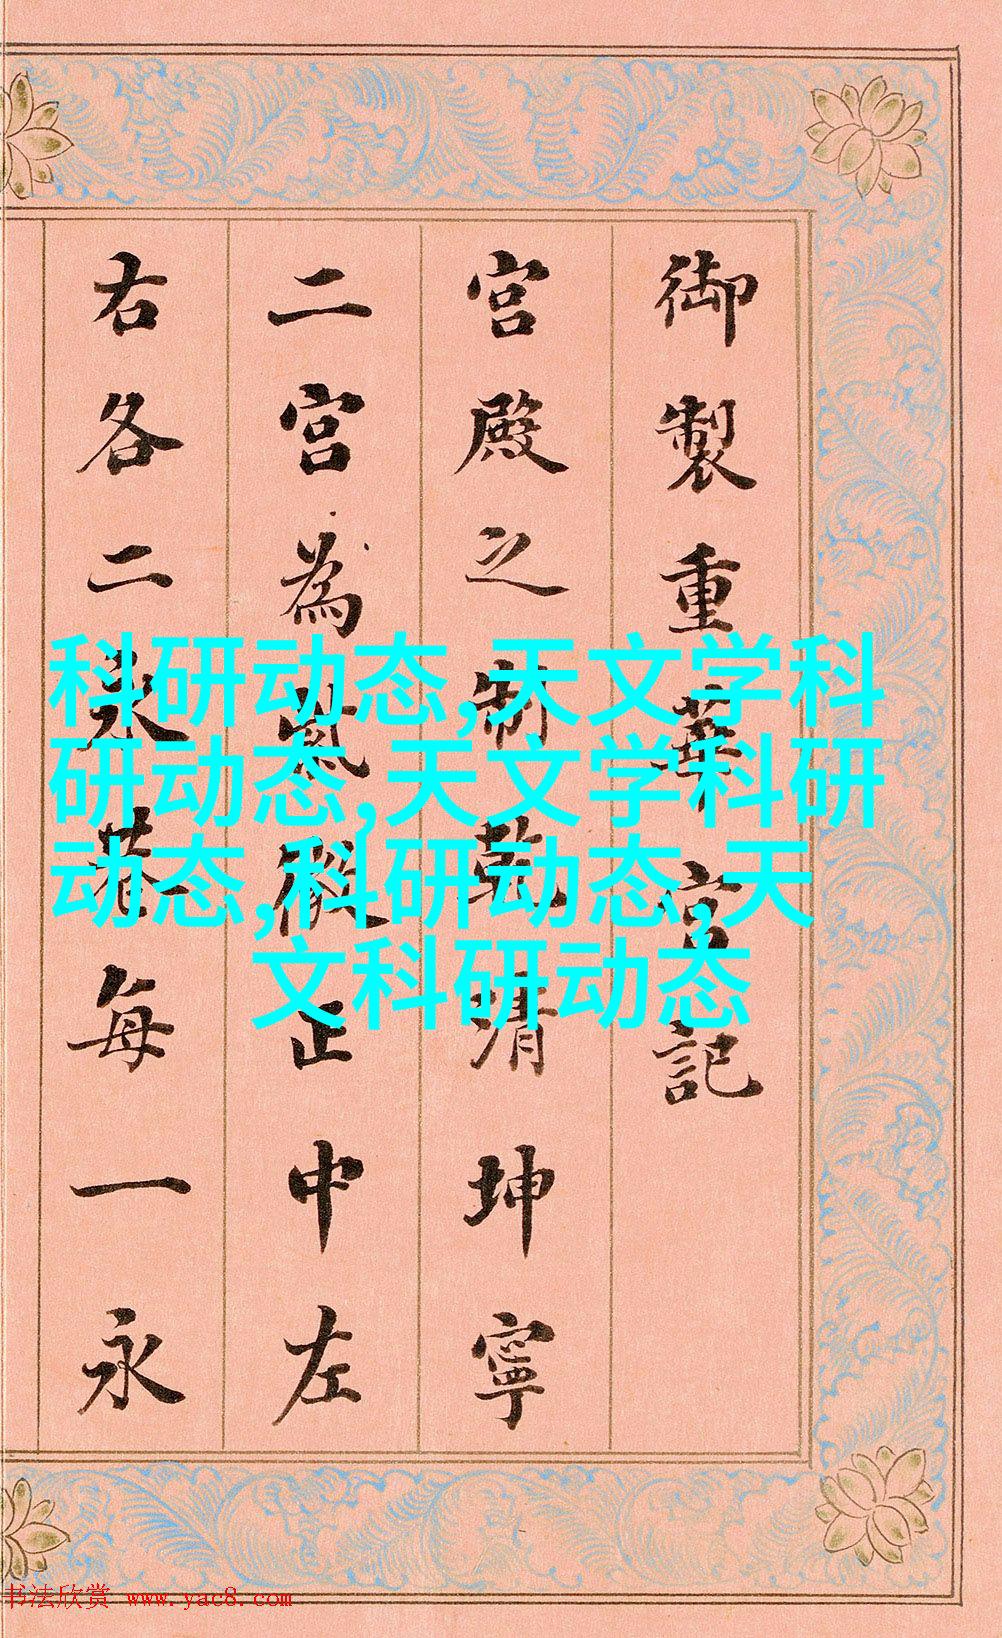 御製重華宮記
宮殿之制乾清坤寧
二宮為微正中左
右各二永巷每一永
科研动态,天文学科
研动态,天文学科研
动态,科研动态,天
文科研动态
书法欣赏 www.yac8.com